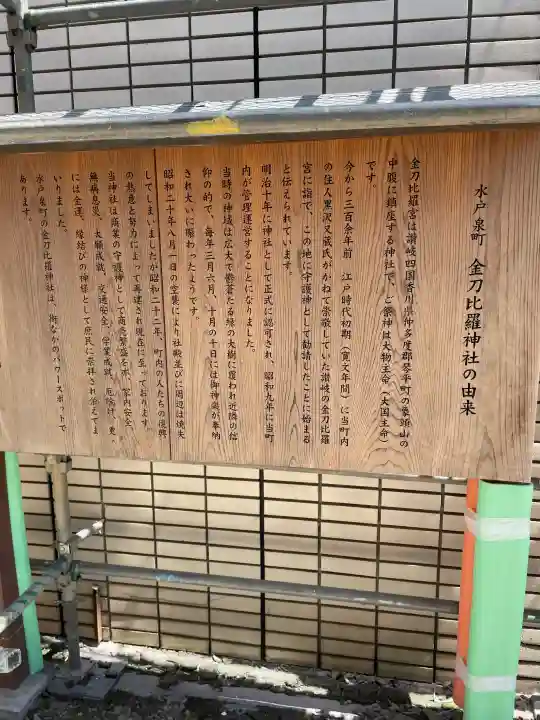 水戸泉町 金刀比羅神社の由来
金刀比羅宮は讃岐四国香川県仲多度郡琴平町の象頭山の
中腹に鎮座する神社で、ご祭神は大物主命（大国主命）
です。
今から三百余年前 江戸時代初期（寛文年間）に当町内
の住人黒沢又蔵氏がかねて崇敬していた讃岐の金刀比羅
宮に詣で、この地に守護神として勧請したことに始まる
と伝えられています。
明治十年に神社として正式に認可され、昭和九年に当町
内が管理運営することになりました。
当時の神域は広大で鬱蒼たる緑の大樹に覆われ近隣の信
仰の的で、毎年三月六月、十月の十日には御神楽が奉納
され大いに賑わったようです。
昭和二十年八月一日の空襲により社殿並びに周辺は焼失
してしまいましたが昭和二十二年、町内の人たちの復興
の熱意と努力によって再建され現在に至っております。
当神社は商業の守護神として商売繁盛を、家内安全、
無病息災、大願成就、交通安全、学業成就、厄除け、更
には金運、縁結びの神様として庶民に崇拝され治えてま
いりました。
水戸泉町の金刀比羅神社は、街なかのパワースポットで
あります。